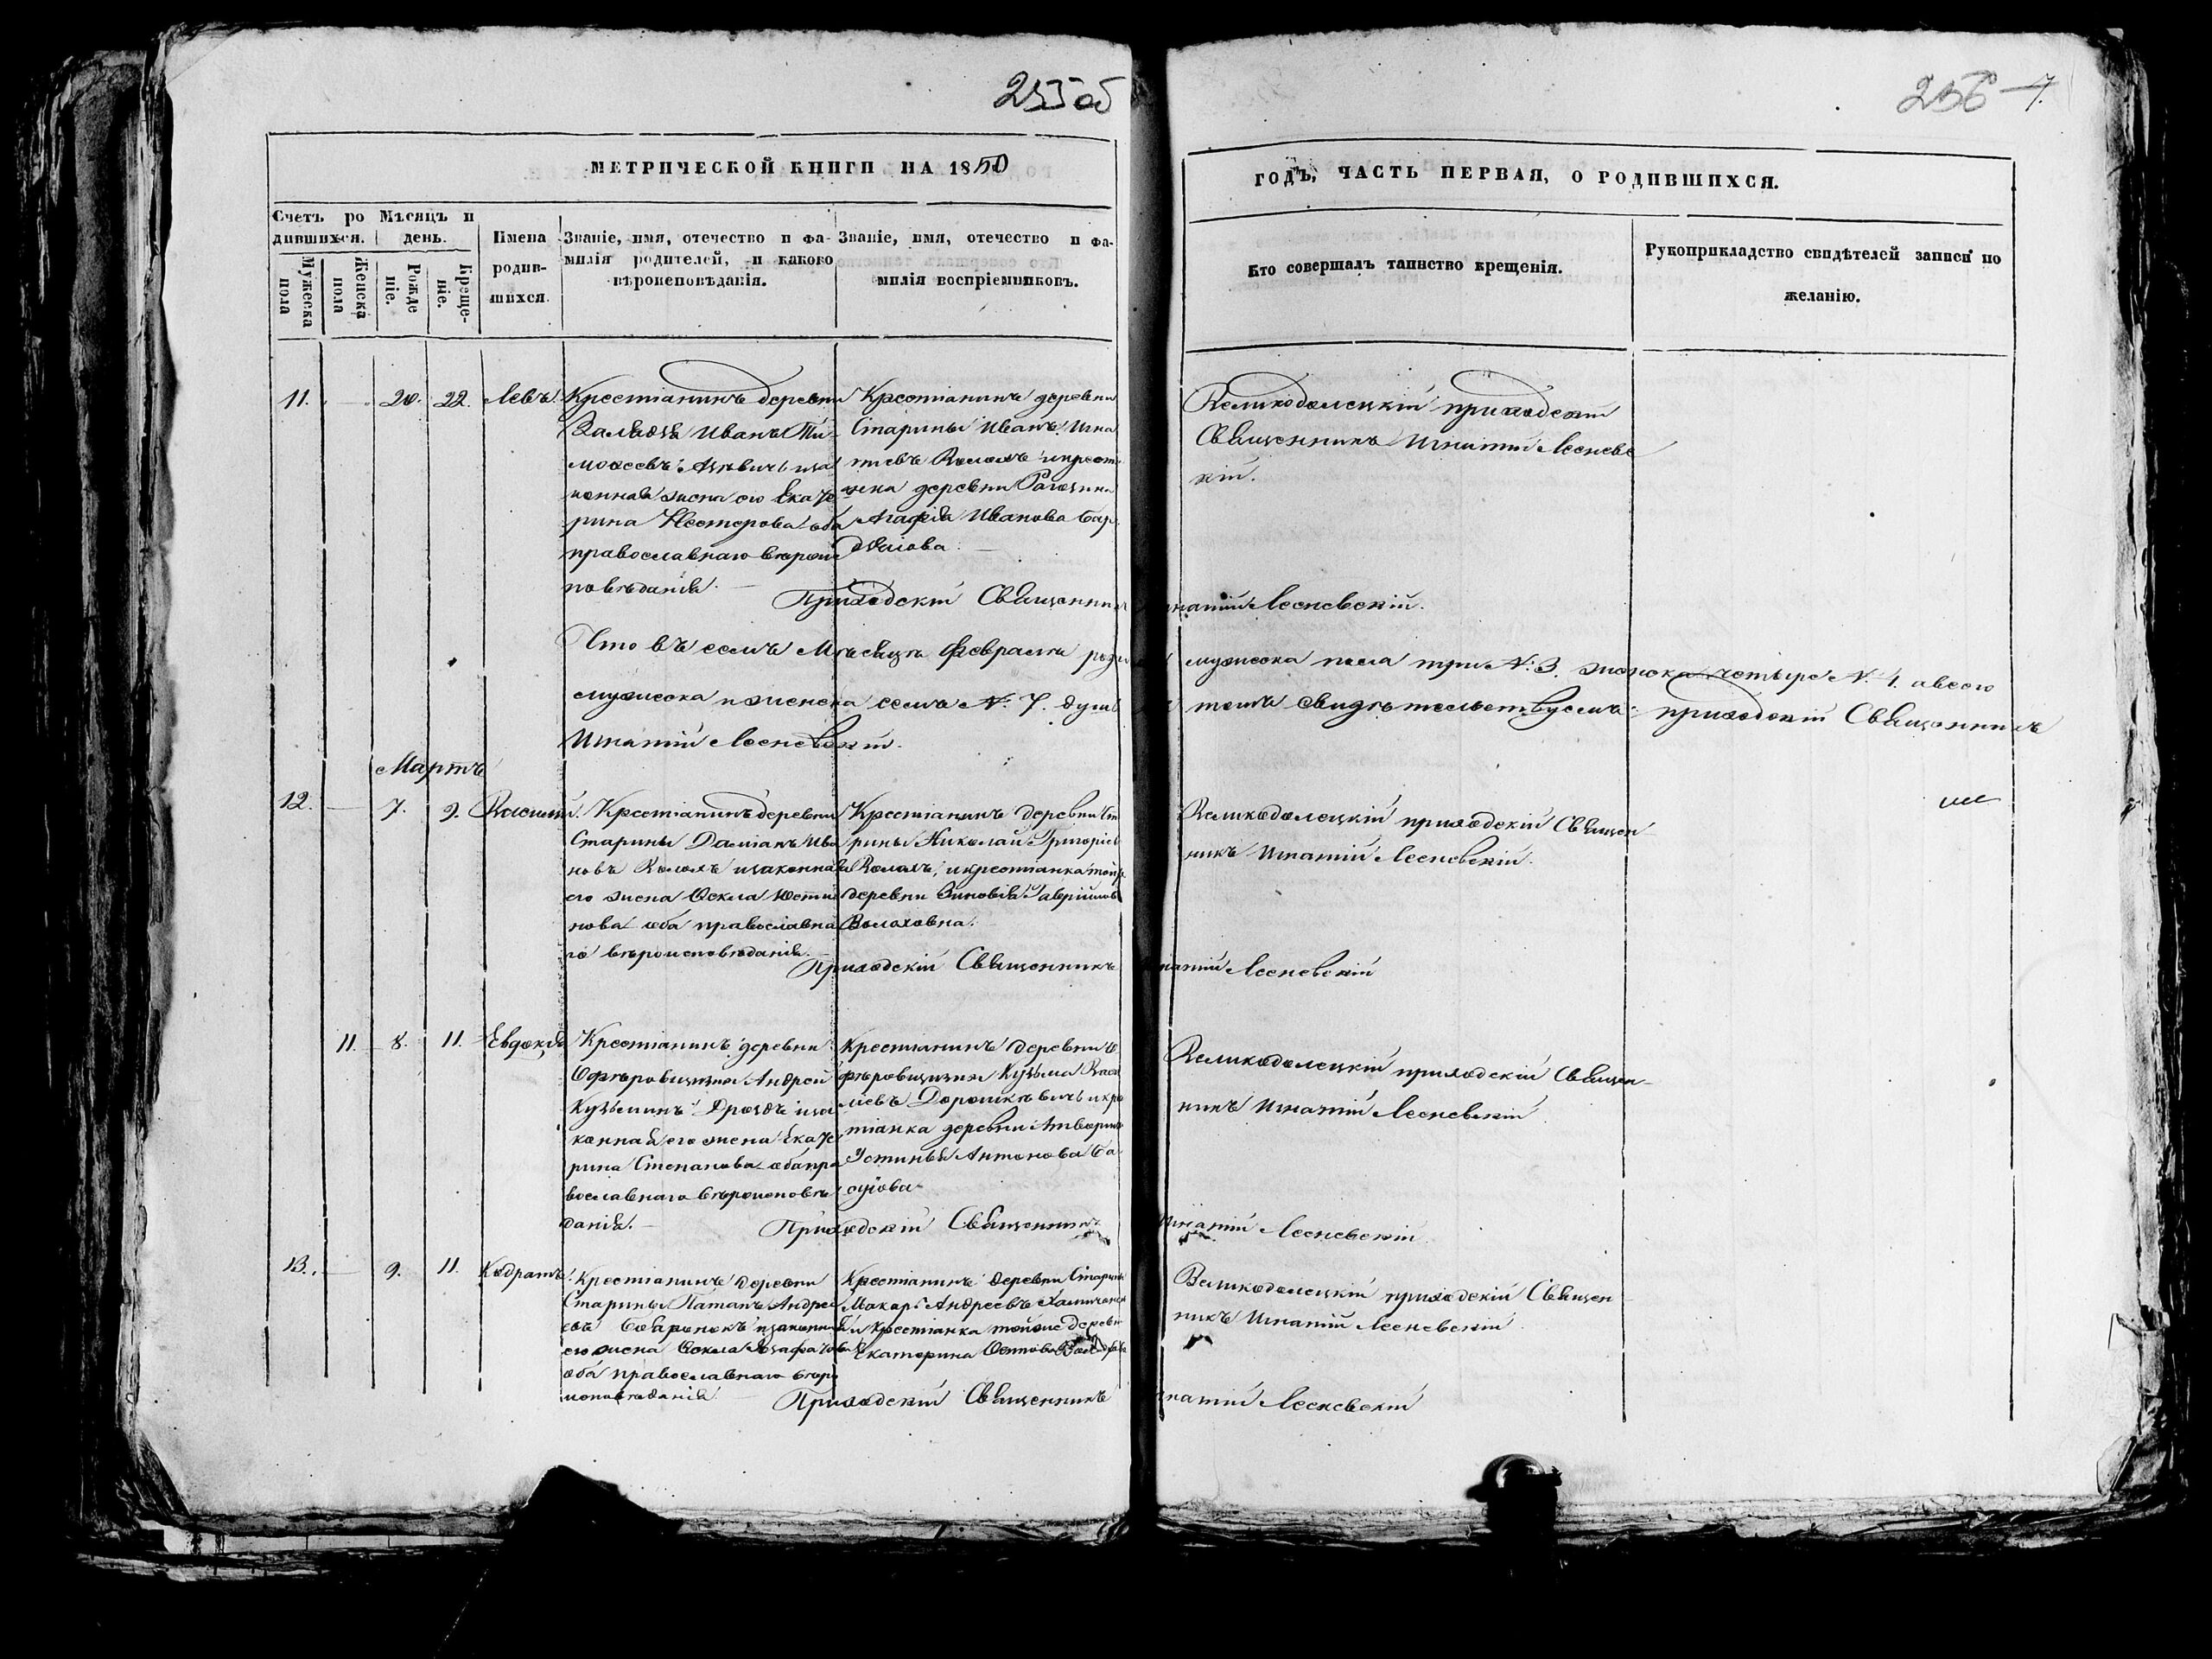 255 об
256
7.
МЕТРИЧЕСКОЙ КНИГИ НА 1850
ГОДЪ, ЧАСТЬ ПЕРВАЯ, О РОДИВШИХСЯ.
Счетъ ро
дившихся.
Мужеска
пола
Женска
пола
Мѣсяцъ и
день.
Рожде
ніе.
Креще-
ніе.
Имена
родив-
шихся.
Званіе, имя, отечество и фа-
милія родителей, и какого
вѣроисповѣданія.
Званіе, имя, отечество и фа-
милія воспріемниковъ.
Кто совершалъ таинство крещенія.
Рукоприкладство свидѣтелей записи по
желанію.
11. 20. 22. Левъ.
Крестіанинъ деревни
Иванъ Ти-
моѳеевъ
жена его Екате
рина Нестерова оба
православнаго вѣроис
повѣданія.
Крестіанинъ деревни
Старины Иванъ Игна
тіевъ Волохъ и крест
янка деревни
Агафія Иванова

Великодолецкій приходскій
Священникъ Игнатій Лесневс
кій.
Приходскій Священникъ Игнатій Лесневскій.
Что въ семъ Мѣсяцѣ Февралѣ
мужеска пола три №. 3. женска четыре №. 4. а всего
мужеска и женска семъ №. 7. душъ
томъ свидѣтельствуемъ: приходскій Священникъ
Игнатій Лесневскій.
Мартъ
12. 7. 9. Василій.
Крестіанинъ деревни
Старины Даміанъ Ива
новъ Волохъ и законная
его жена Ѳекла Юсти
нова оба православна
го вѣроисповѣданія.
Крестіанинъ деревни Ста
рины Николай Григоріев
Волохъ, и крестіанка той же
деревни Зиновія
Волоховна.
Великодолецкій приходскій Священ
никъ Игнатій Лесневскій.
Приходскій Священникъ Игнатій Лесневскій
11. 8. 11. Евдокія
Крестіанинъ деревни
Офѣровщизны Андрей
Кузьминъ Дроздъ и за
конная его жена Екате
рина Степанова оба пра
вославнаго вѣроисповѣ
данія.
Крестіанинъ деревни О
фѣровщизны Кузьма Васи
ліевъ Дорошкѣвичъ и кре
тіанка деревни
Устинья Антонова

Великодолецкій приходскій Священ-
никъ Игнатій Лесневскій
Приходскій Священникъ Игнатій Лесневскій.
13. 9. 11. Кодратъ.
Крестіанинъ деревни
Старины Патапъ Андре
евъ и законная
его жена Ѳекла
оба православнаго вѣро
исповѣданія
Крестіанинъ деревни Старины
Макаръ Андреевъ
и крестіанка той же деревни
Екатерина Осипова
Великодолецкій приходскій Священ
никъ Игнатій Лесневскій.
Приходскій Священникъ Игнатій Лесневскій